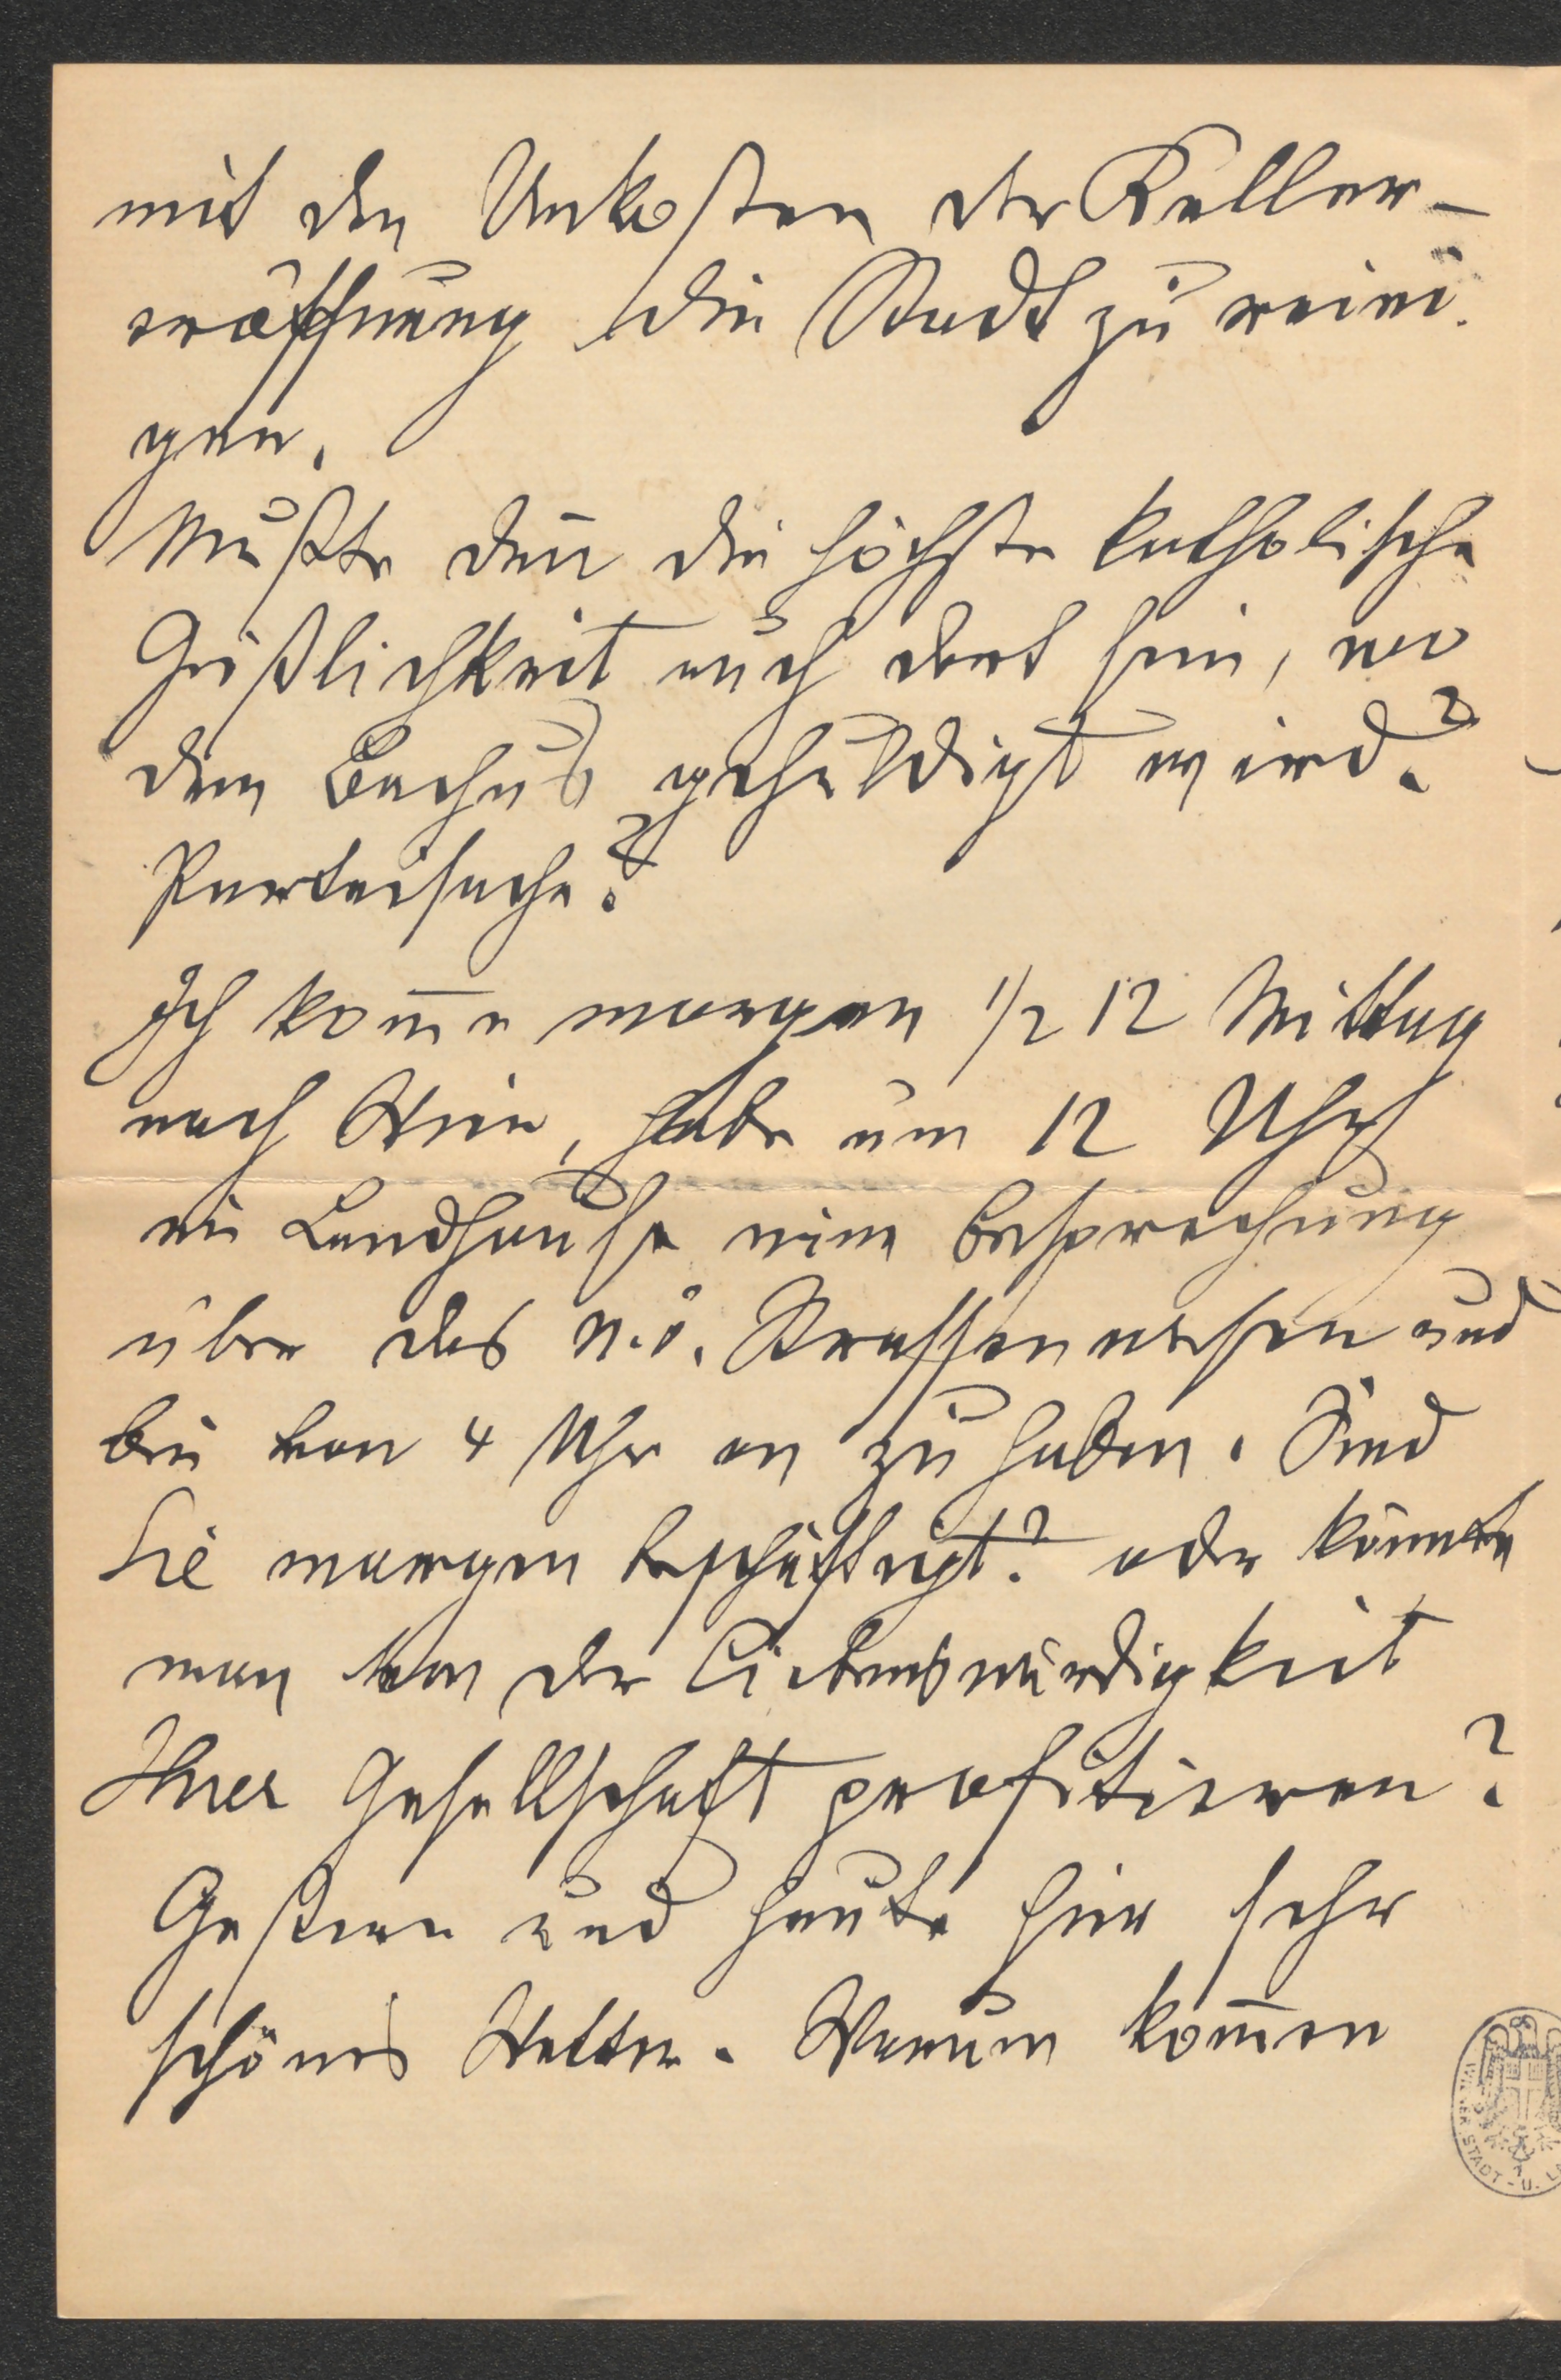 mit den Unkosten der Keller-
eröffnung die Stadt zu reini-
gen.
Mußte den̄ die höchste katholische
Geistlichkeit auch dort hin, wo
dem Bachus gehuldigt wird?
Parteisache?
Ich kom̄e morgen 1/2 12 Mittag
nach Wien, habe um 12 Uhr
im Landhause eine Besprechung
über das n.ö. Strassenwesen und
bin von 4 Uhr an zu haben. Sind
Sie morgen beschäftigt? oder könnte
man von der Liebenswürdigkeit
Ihrer Gesellschaft profitieren?
Gestern und heute hier sehr
schönes Wetter. Warum kom̄en
STADT - U. L